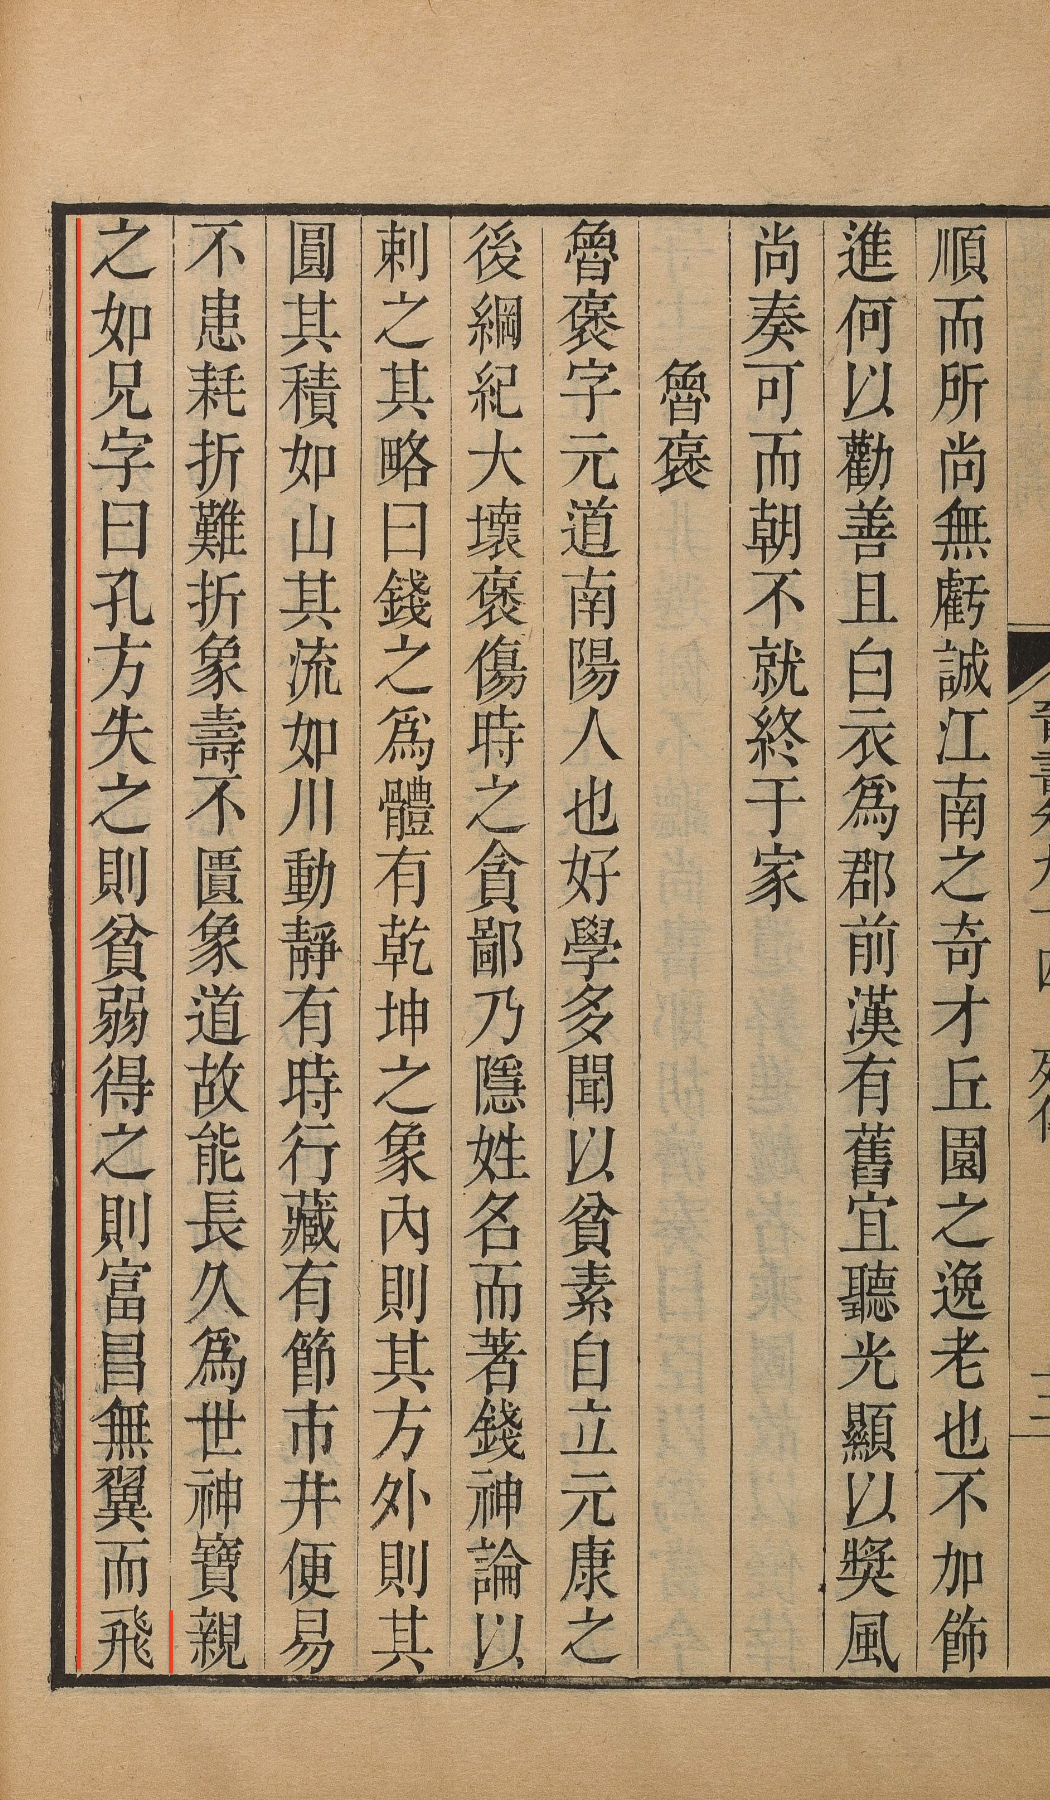 順而所尚無虧誠江南之奇才丘園之逸老也不加飾
進何以勸善且白衣爲郡前漢有舊宜聽光顯以奬風
尚奏可而朝不就終于家
魯褒
魯褒字元道南陽人也好學多聞以貧素自立元康之
後綱紀大壞褒傷時之貪鄙乃隱姓名而著錢神論以
刺之其略曰錢之爲體有乾坤之象內則其方外則其
圓其積如山其流如川動靜有時行藏有節市井便易
不患耗折難折象壽不匱象道故能長久爲世神寶親
之如兄字曰孔方失之則貧弱得之則富昌無翼而飛